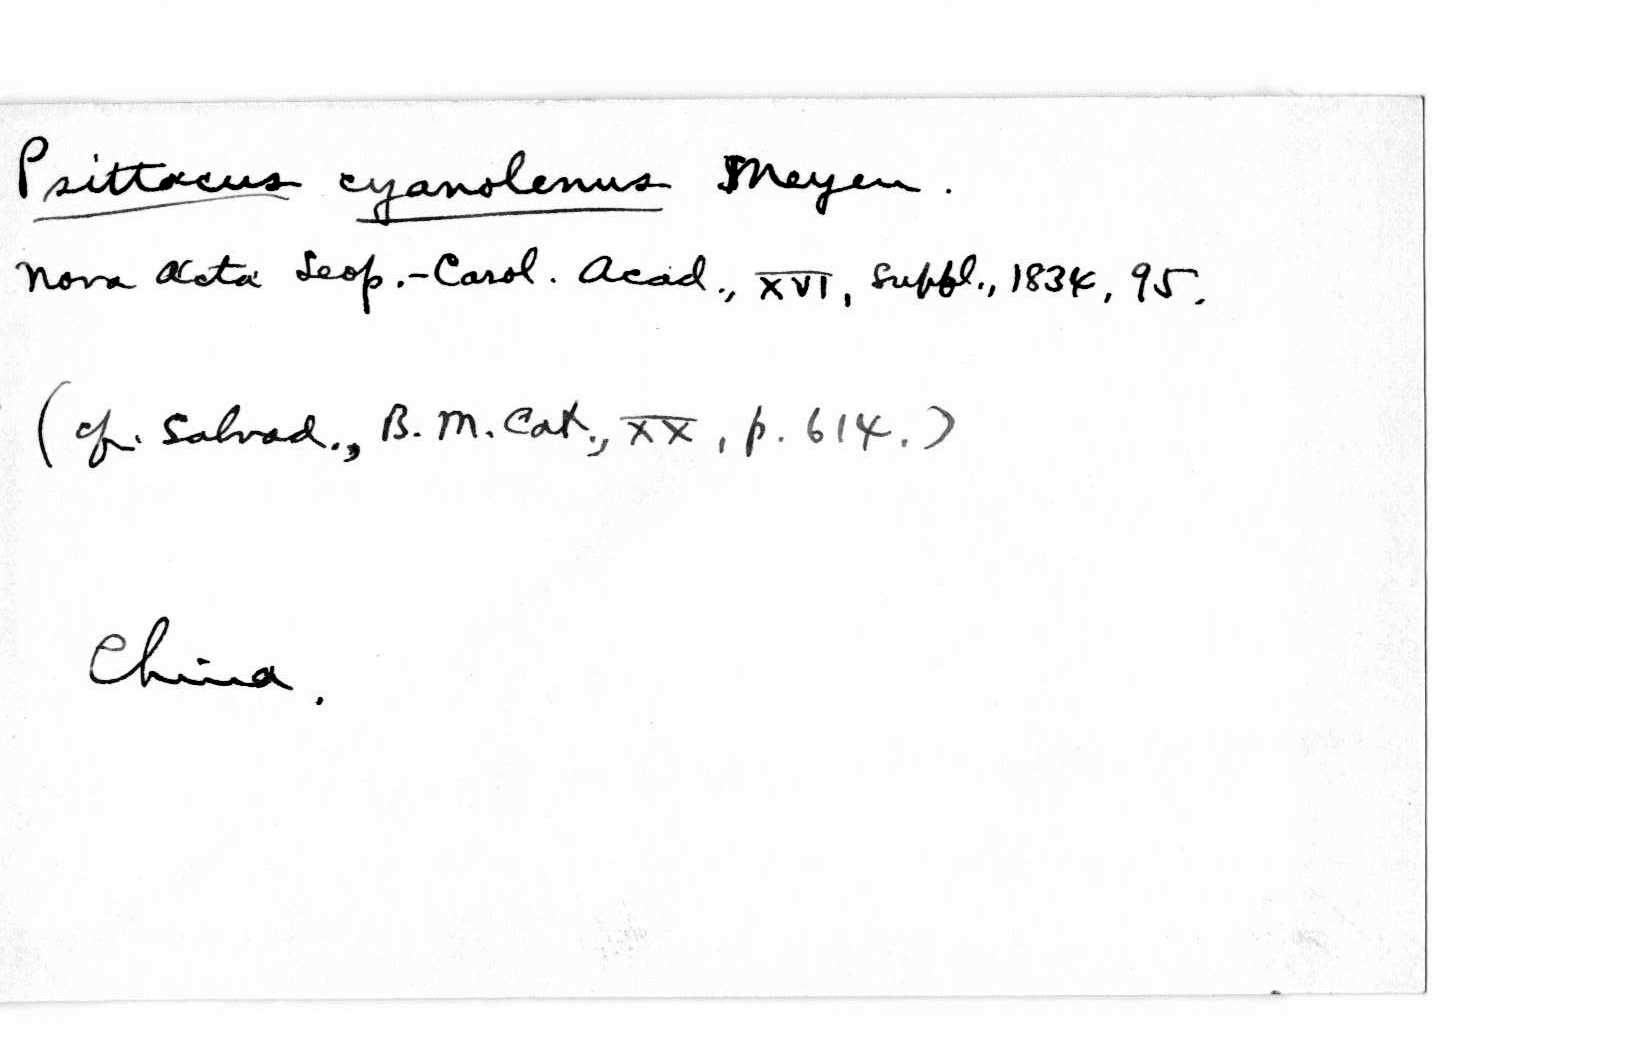 Psittacus cyanolenus Meyen.
Nova Acta Leop.-Carol. Acad., XVI, Suppl., 1834, 95.
(cf. Salvad., B.M. Cat., XX, p. 614.)
China.